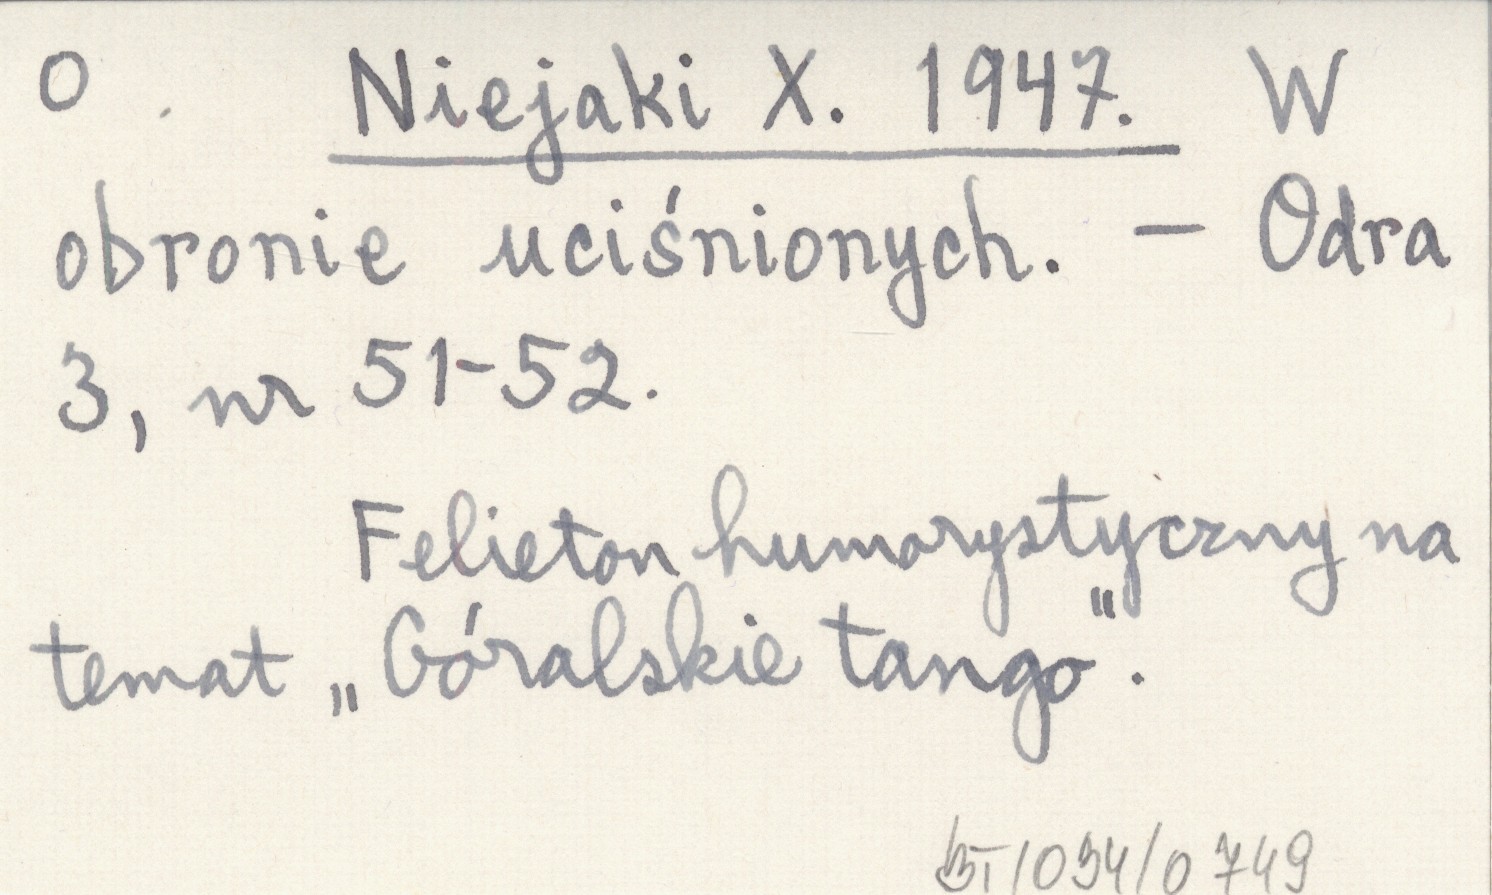 O Niejaki X. 1947. W
obronie uciśnionych. — Odra
3, nr 51-52.
Felieton humorystyczny na
temat „Góralskie tango".
BT/034/0749